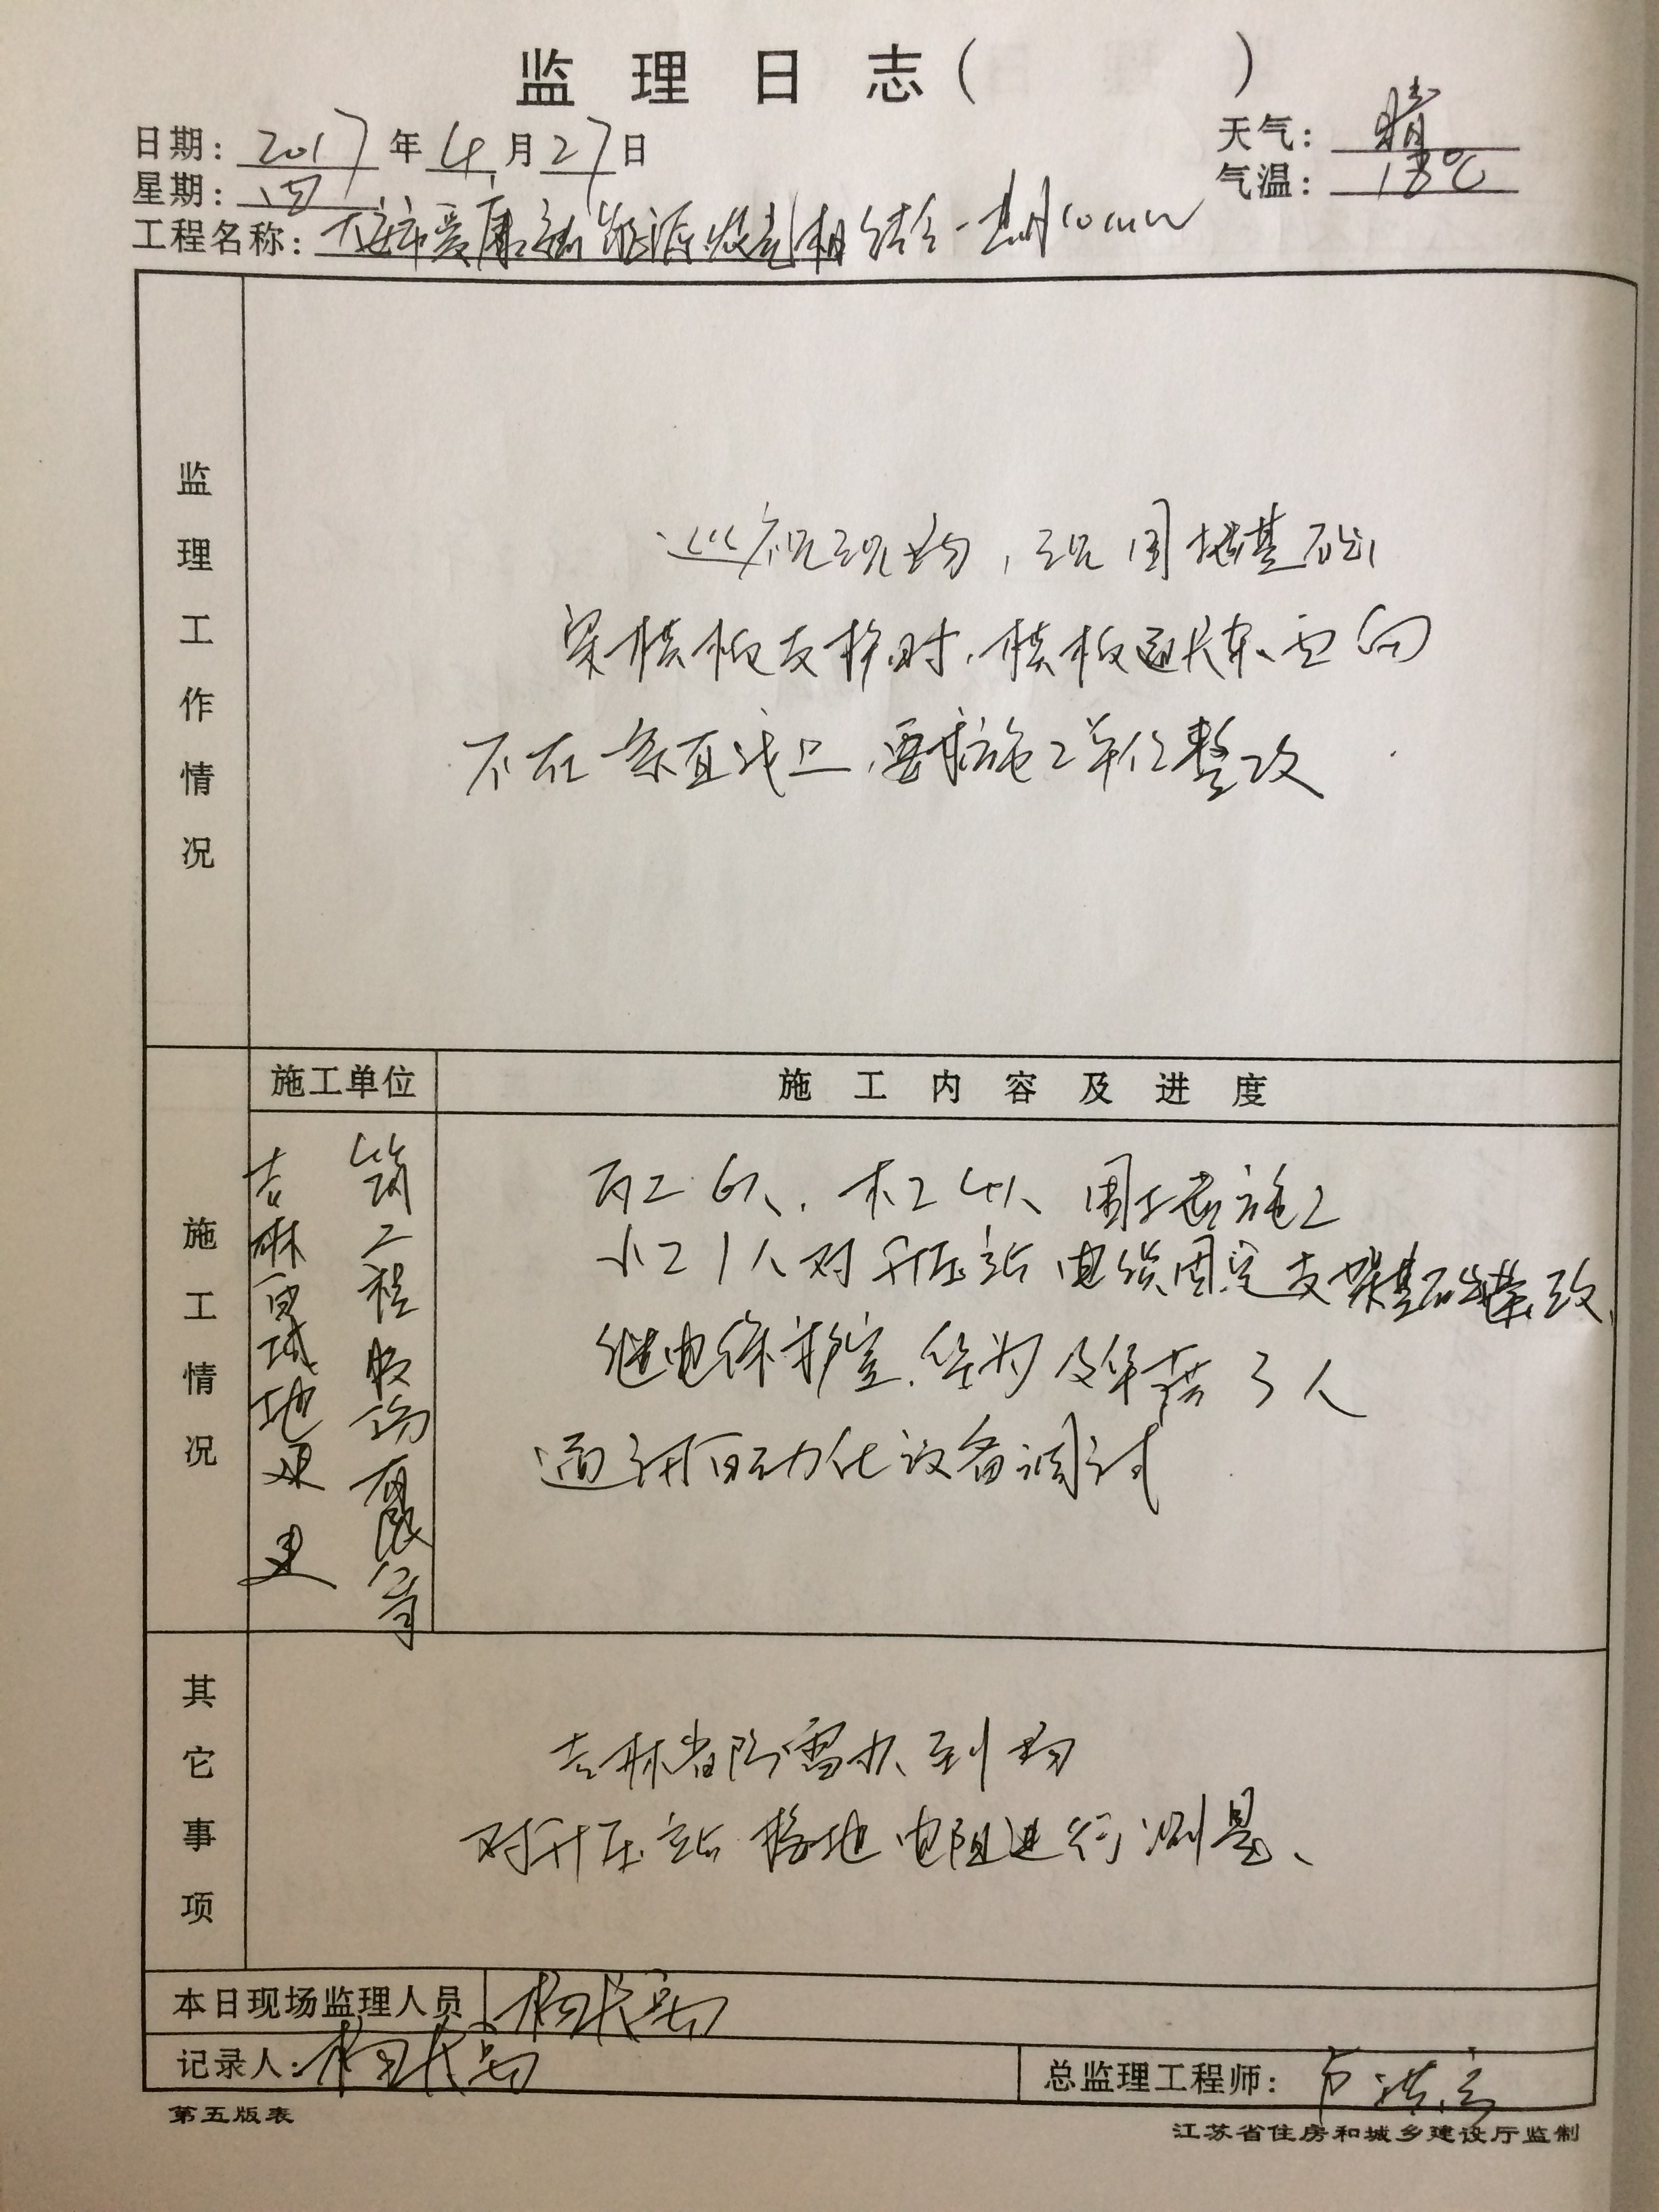 监理日志(　　　)
日期: 2017年4月27日
天气: 晴
星期: 四
气温: 18℃
工程名称: 大安市爱康新能源牧光相结合一期10MW
监理工作情况
巡视现场,现围墙基础
梁模板支护时,模板通长东西向
不在一条直线上,要求施工单位整改
施工情况
施工单位
施工内容及进度
吉林百城地
筑工程股份有限公司
瓦工6人、木工4人 围墙施工
小工1人对升压站电缆固定支架基础整改、
继电保护室、华为及 3人
通讯自动化设备调试
其它事项
吉林省防雷办到场
对升压站接地电阻进行测量、
本日现场监理人员
记录人:
总监理工程师:
第五版表
江苏省住房和城乡建设厅监制